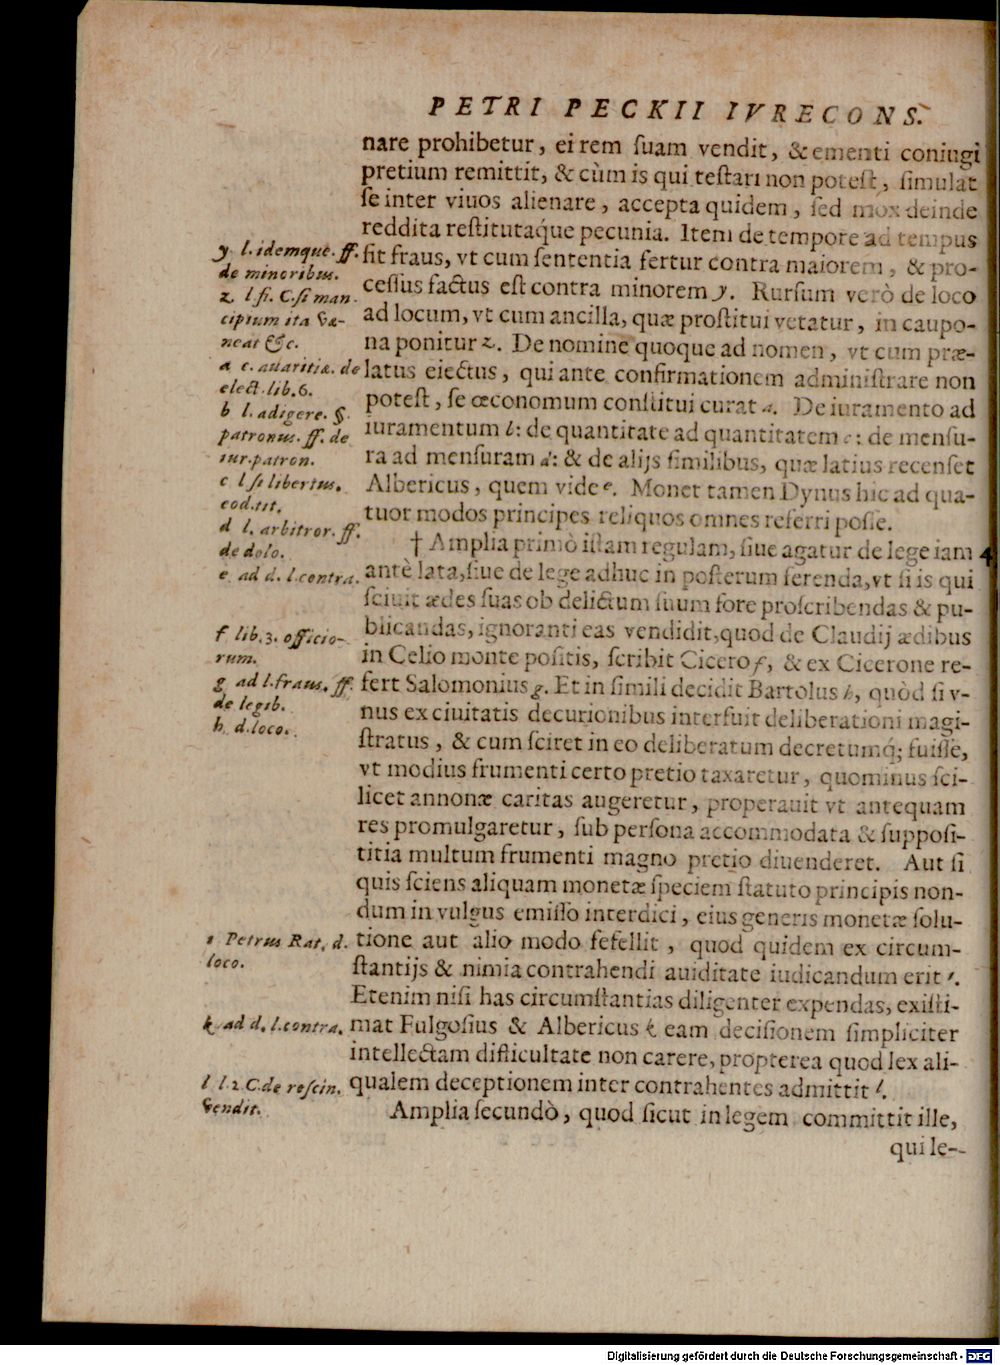 PETRI PECKII IVRECONS.
nare prohibetur, ei rem ſuam vendit, & ementi coniugi
pretium remittit, & cùm is qui teſtari non poteſt, ſimulat
ſe inter viuos alienare, accepta quidem, ſed mox deinde
reddita reſtitutaq́ue pecunia. Item de tempore ad tempus
fit fraus, vt cum ſententia fertur contra maiorem, & pro-
ceſſus factus eſt contra minorem y. Rurſum verò de loco
ad locum, vt cum ancilla, quæ proſtitui vetatur, in caupo-
na ponitur z. De nomine quoque ad nomen, vt cum præ-
latus eiectus, qui ante confirmationem adminiſtrare non
poteſt, ſe œconomum conſtitui curat a. De iuramento ad
iuramentum b: de quantitate ad quantitatem c: de menſu-
ra ad menſuram d: & de alijs ſimilibus, quæ latius recenſet
Albericus, quem vide e. Monet tamen Dynus hic ad qua-
tuor modos principes reliquos omnes referri poſſe.
† Amplia primò iſtam regulam, ſiue agatur de lege iam 4
antè lata, ſiue de lege adhuc in poſterum ferenda, vt ſi is qui
ſciuit ædes ſuas ob delictum ſuum fore proſcribendas & pu-
blicandas, ignoranti eas vendidit, quod de Claudij ædibus
in Celio monte poſitis, ſcribit Cicero f, & ex Cicerone re-
fert Salomonius g. Et in ſimili decidit Bartolus h, quòd ſi v-
nus ex ciuitatis decurionibus interfuit deliberationi magi-
ſtratus, & cum ſciret in eo deliberatum decretumq́; fuiſſe,
vt modius frumenti certo pretio taxaretur, quominus ſci-
licet annonæ caritas augeretur, properauit vt antequam
res promulgaretur, ſub perſona accommodata & ſuppoſi-
titia multum frumenti magno pretio diuenderet. Aut ſi
quis ſciens aliquam monetæ ſpeciem ſtatuto principis non-
dum in vulgus emiſſo interdici, eius generis monetæ ſolu-
tione aut alio modo fefellit, quod quidem ex circum-
ſtantijs & nimia contrahendi auiditate iudicandum erit i.
Etenim niſi has circumſtantias diligenter expendas, exiſti-
mat Fulgoſius & Albericus k eam deciſionem ſimpliciter
intellectam difficultate non carere, propterea quod lex ali-
qualem deceptionem inter contrahentes admittit l.
Amplia ſecundò, quod ſicut in legem committit ille,
qui le-
y l. idemque. ff.
de minoribus.
z l. ſi. C. ſi man
cipium ita væ-
neat &c.
a c. auaritiæ. de
elect. lib. 6.
b l. adigere. §.
patronus. ff. de
iur. patron.
c l. ſi libertus.
eod. tit.
d l. arbitror. ff.
de dolo.
e ad d. l. contra.
f lib. 3. officio-
rum.
g ad l. fraus. ff.
de legib.
h d. loco.
i Petrus Rat. d.
loco.
k ad d. l. contra.
l l. 2 C. de reſcin.
vendit.
Digitalisierung gefördert durch die Deutsche Forschungsgemeinschaft - DFG